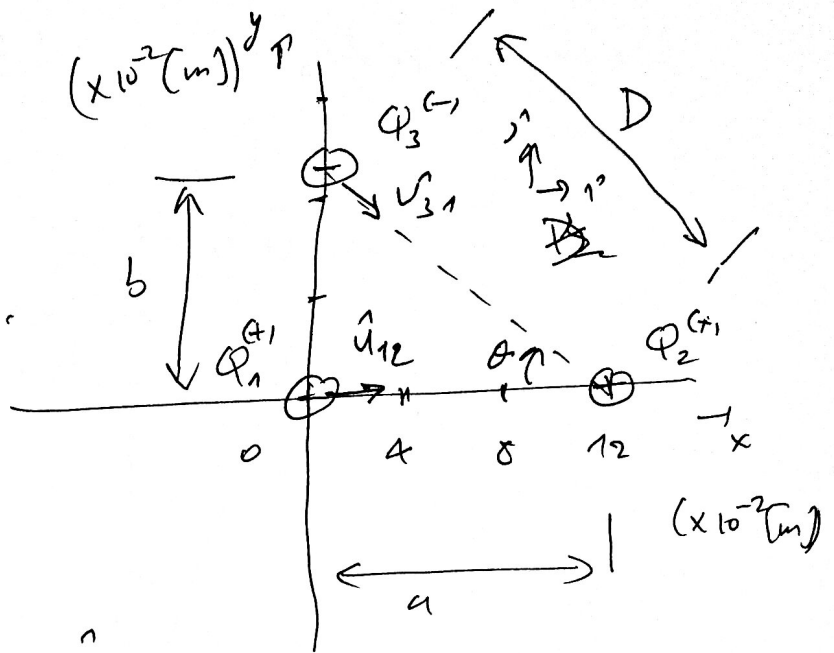 (×10⁻² [m]) y
Q₃⁽⁻⁾
D
ĵ
î
v₃₁
b
Q₁⁽⁺⁾
û₁₂
θ
Q₂⁽⁺⁾
0 4 8 12 x
(×10⁻² [m])
a